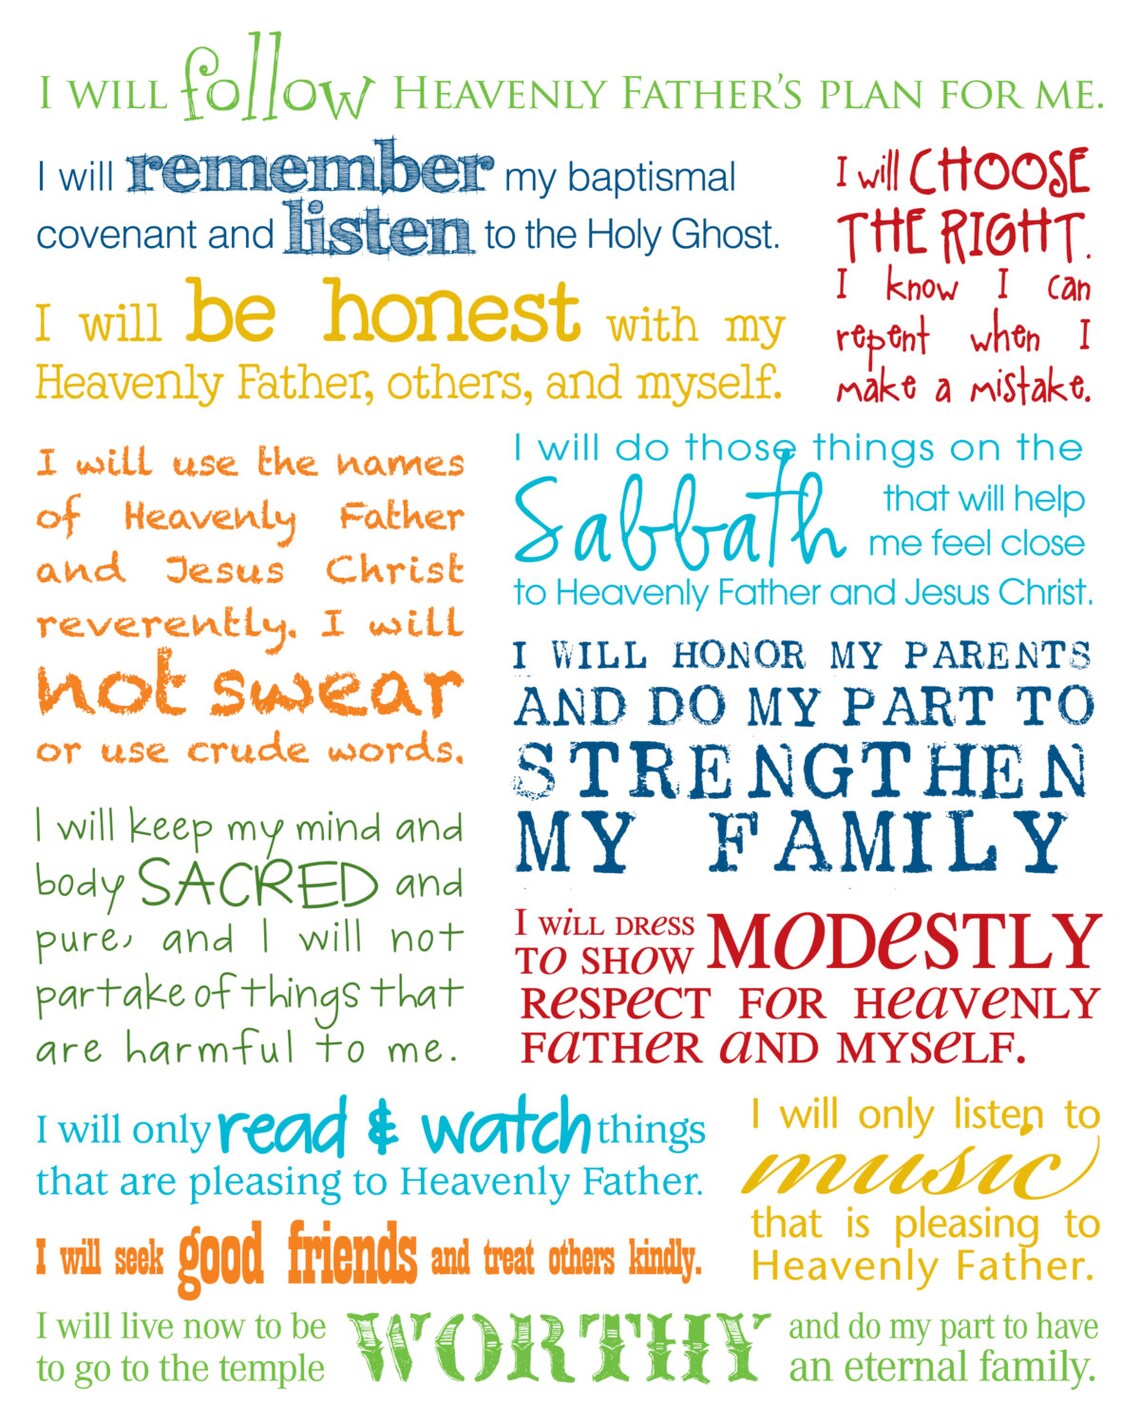 I WILL follow HEAVENLY FATHER'S PLAN FOR ME.
I will remember my baptismal
covenant and listen to the Holy Ghost.
I will be honest with my
Heavenly Father, others, and myself.
I will CHOOSE
THE RIGHT.
I know I can
repent when I
make a mistake.
I will use the names
of Heavenly Father
and Jesus Christ
reverently. I will
not swear
or use crude words.
I will do those things on the
Sabbath that will help
me feel close
to Heavenly Father and Jesus Christ.
I WILL HONOR MY PARENTS
AND DO MY PART TO
STRENGTHEN
MY FAMILY
I will keep my mind and
body SACRED and
pure, and I will not
partake of things that
are harmful to me.
I WiLL DReSS MODeSTLY
TO SHOW
ReSPeCT FOR HeaVeNLY
FaTHeR aND MYSeLF.
I will only read & watch things
that are pleasing to Heavenly Father.
I will only listen to
music
that is pleasing to
Heavenly Father.
I will seek good friends and treat others kindly.
I will live now to be
to go to the temple
WORTHY
and do my part to have
an eternal family.